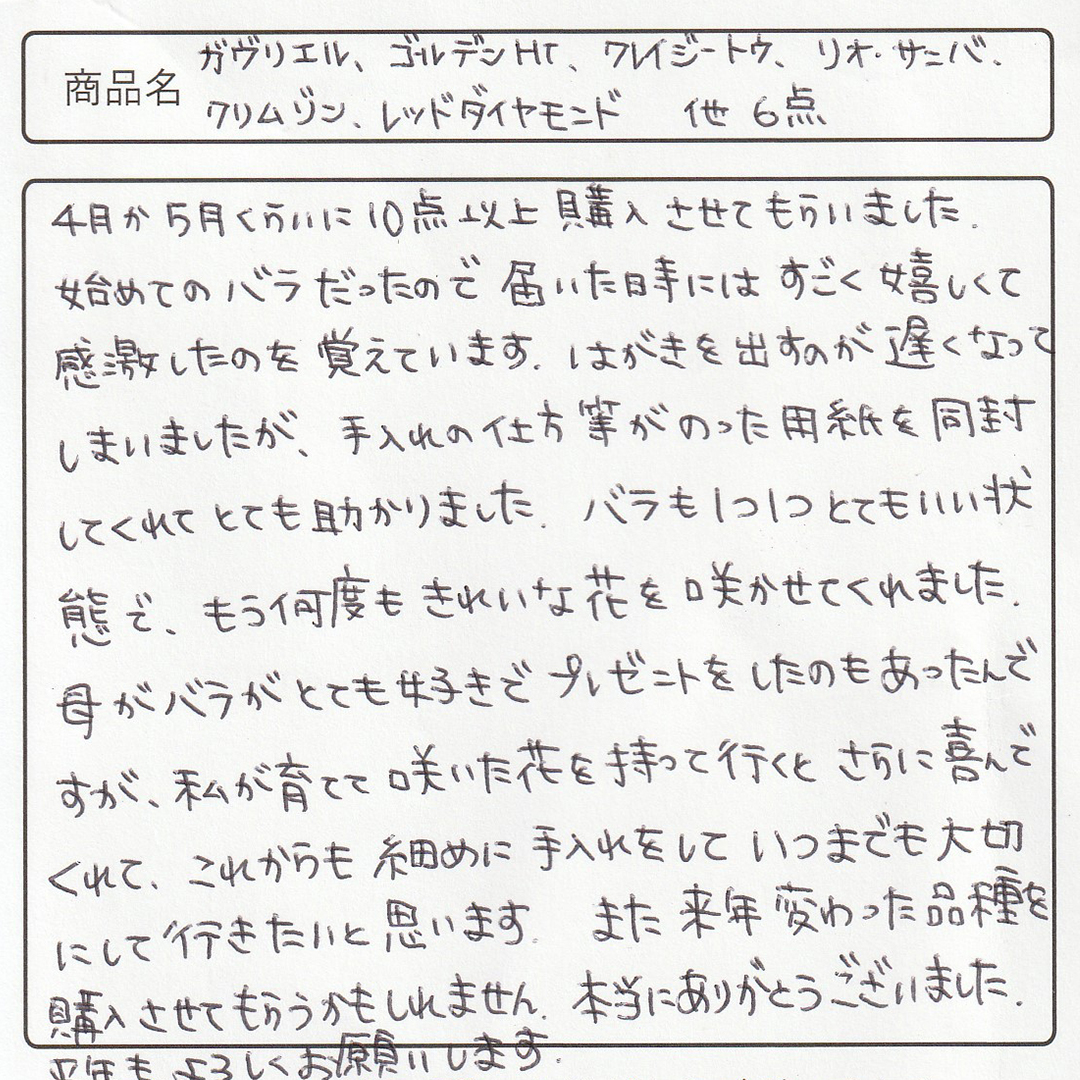 商品名
ガヴリエル、ゴールデンHT、クレイジートゥ、リオ・サンバ、
クリムゾン、レッドダイヤモンド 他 6点
4月か5月くらいに10点以上購入させてもらいました。
始めてのバラだったので届いた時にはすごく嬉しくて
感激したのを覚えています。はがきを出すのが遅くなって
しまいましたが、手入れの仕方等がのった用紙を同封
してくれてとても助かりました。バラも1つ1つとてもいい状
態で、もう何度もきれいな花を咲かせてくれました。
母がバラがとても好きでプレゼントをしたのもあったんで
すが、私が育てて咲いた花を持って行くとさらに喜んで
くれて、これからも細めに手入れをしていつまでも大切
にして行きたいと思います。 また来年変わった品種を
購入させてもらうかもしれません。本当にありがとうございました。
来年もよろしくお願いします。